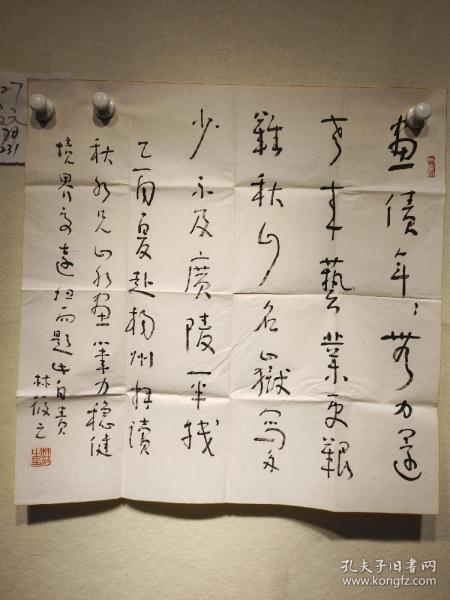 畫債年:無力還
老来藝業更艱
難秋名嶽寫多
少不及廣陵一半
乙酉夏赴揚州拜讀
秋水兄山水畫筆力穩健
境界高遠而題此自責
林筱之
27
231
孔夫子旧书网
www.kongfz.com